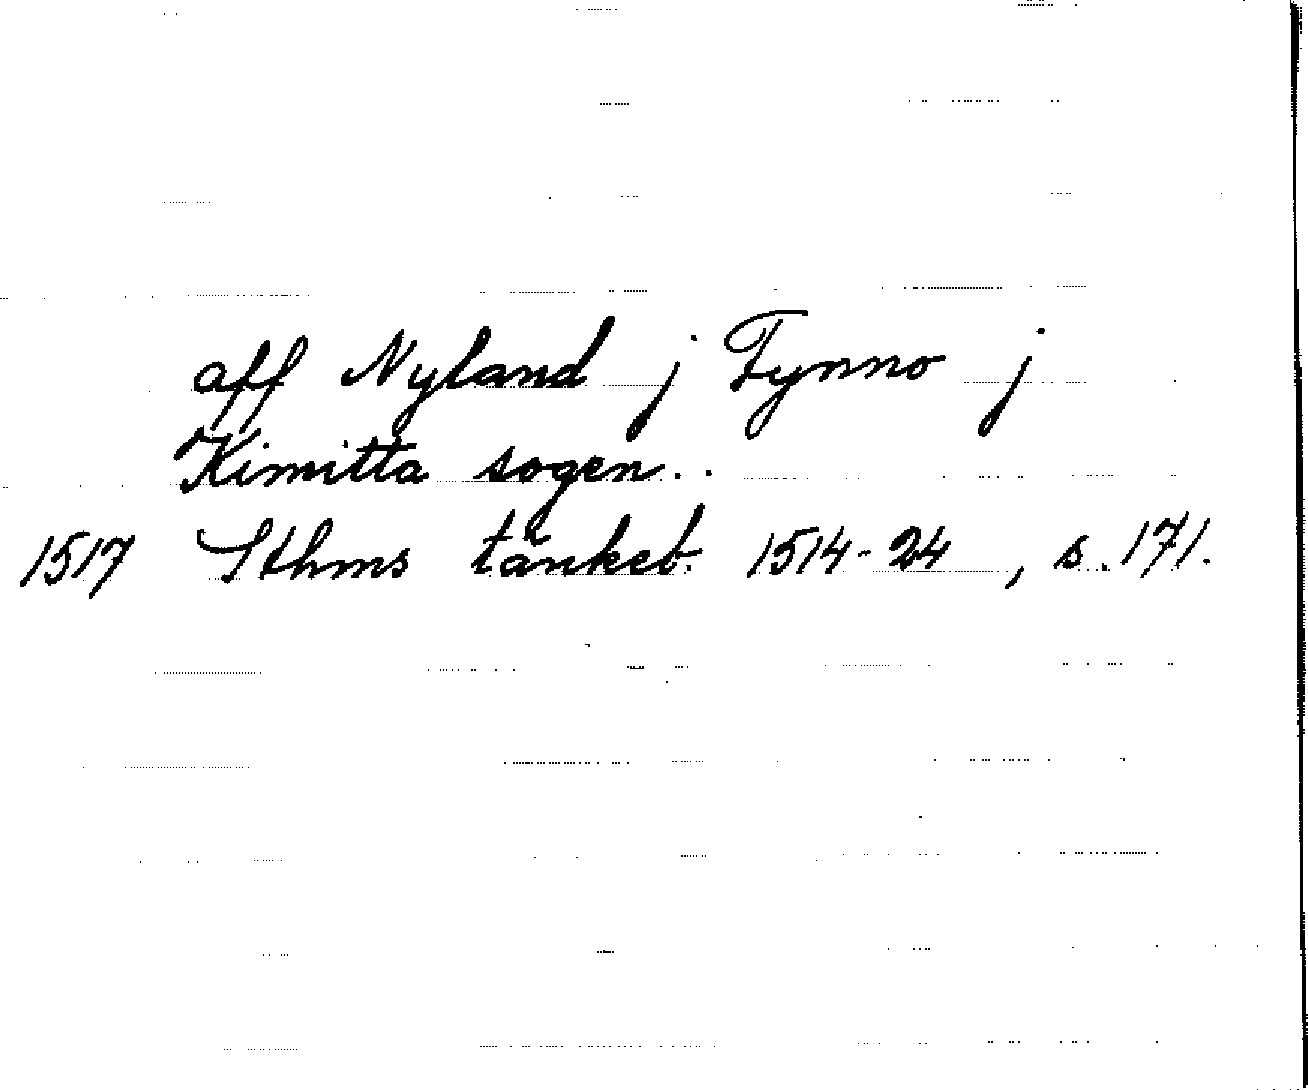 aff Nyland j Fynno j
Kimitta sogen..
1517 Sthms tänkeb. 1514-24, s. 171.